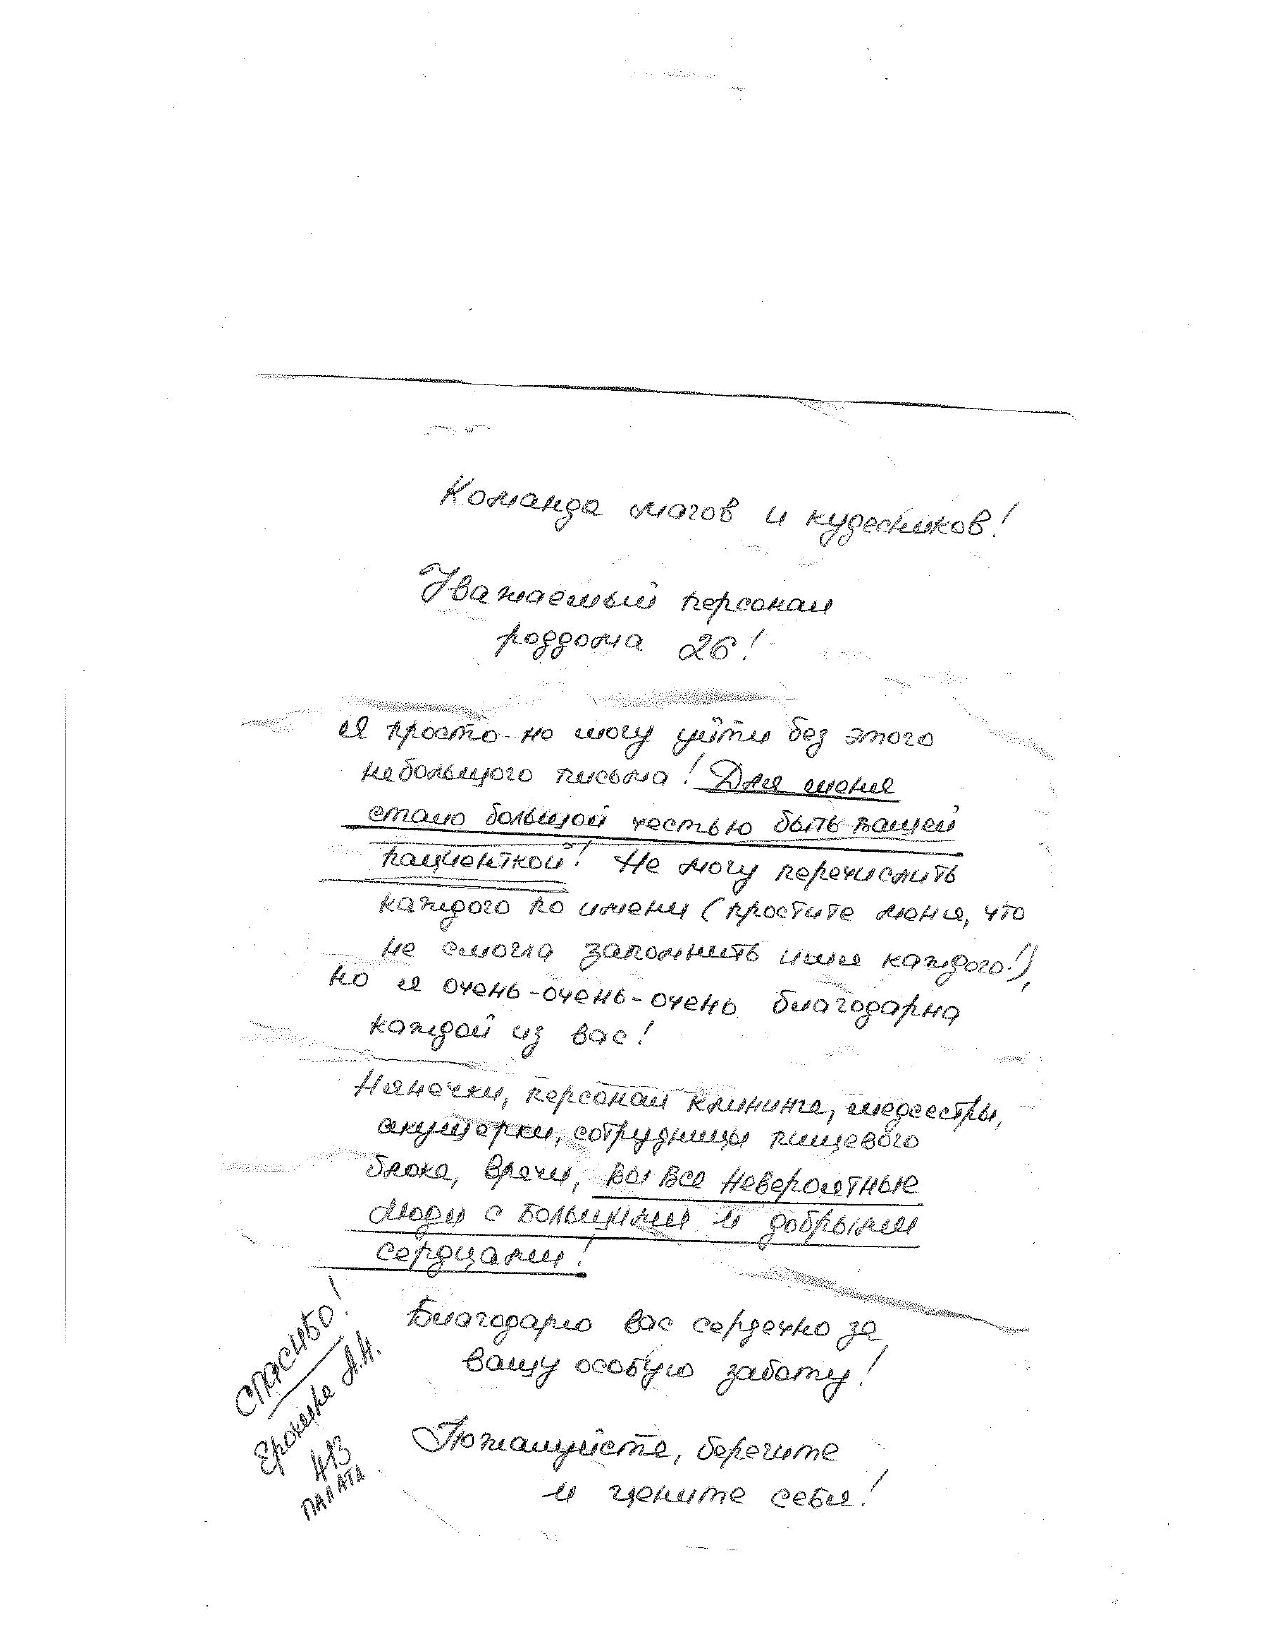 Команда магов и кудесников!
Уважаемый персонал
роддома 26!
Я просто не могу уйти без этого
небольшого письма! Для меня
стало большой честью быть вашей
пациенткой! Не могу перечислить
каждого по имени (простите меня, что
не смогла запомнить имя каждого!),
но я очень-очень-очень благодарна
каждой из вас!
Нянечки, персонал клининга, медсестры,
акушерки, сотрудницы пищевого
блока, врачи, вы все невероятные
люди с большими и добрыми
сердцами!
Благодарю вас сердечно за
вашу особую заботу!
Пожалуйста, берегите
и цените себя!
СПАСИБО!
413
ПАЛАТА